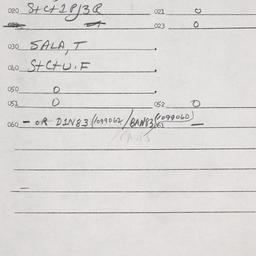 020 S+C+1PJ3R 021 0
023 0
030 SALA, T
040 S+C+U.F
050 0
051 0 052 0
060 - OR DIN83 (1099062 / BAN83 (1099060)
061 -